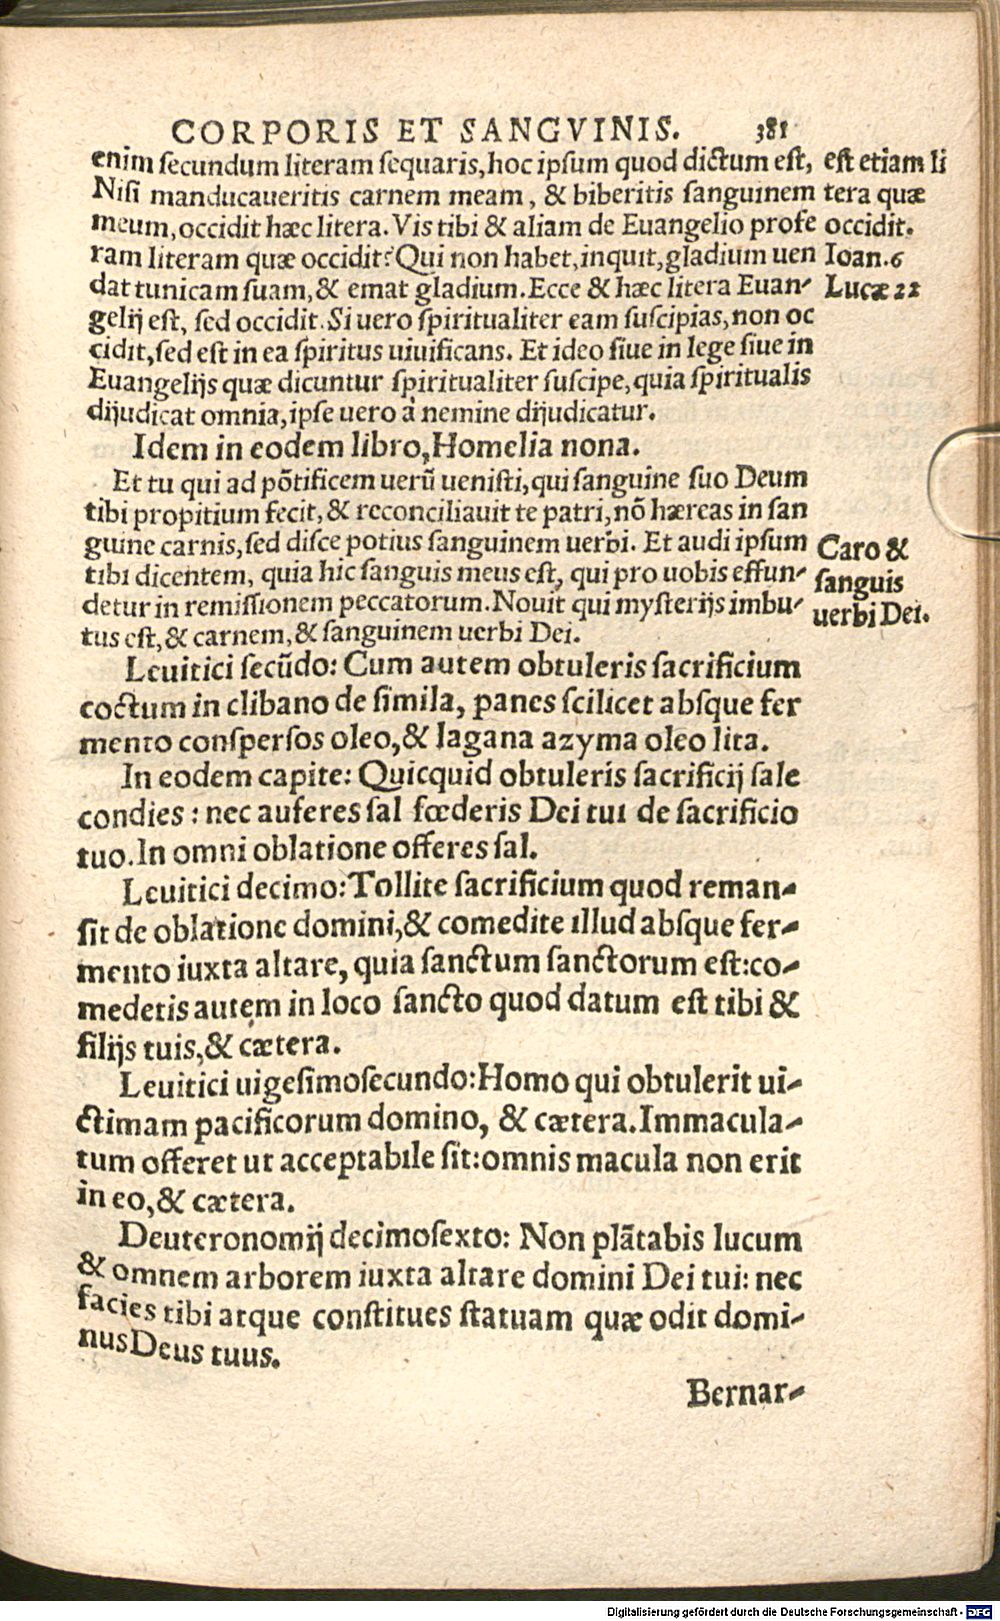 CORPORIS ET SANGVINIS. 381
enim secundum literam sequaris, hoc ipsum quod dictum est,
Nisi manducaueritis carnem meam, & biberitis sanguinem
meum, occidit hæc litera. Vis tibi & aliam de Euangelio profe
ram literam quæ occidit? Qui non habet, inquit, gladium uen
dat tunicam suam, & emat gladium. Ecce & hæc litera Euan-
gelij est, sed occidit. Si uero spiritualiter eam suscipias, non oc
cidit, sed est in ea spiritus uiuificans. Et ideo siue in lege siue in
Euangelijs quæ dicuntur spiritualiter suscipe, quia spiritualis
dijudicat omnia, ipse uero à nemine dijudicatur.
est etiam li
tera quæ
occidit.
Ioan.6
Lucæ 22
Idem in eodem libro, Homelia nona.
Et tu qui ad põtificem uerũ uenisti, qui sanguine suo Deum
tibi propitium fecit, & reconciliauit te patri, nõ hæreas in san
guine carnis, sed disce potius sanguinem uerbi. Et audi ipsum
tibi dicentem, quia hic sanguis meus est, qui pro uobis effun-
detur in remissionem peccatorum. Nouit qui mysterijs imbu-
tus est, & carnem, & sanguinem uerbi Dei.
Caro &
sanguis
uerbi Dei.
Leuitici secũdo: Cum autem obtuleris sacrificium
coctum in clibano de simila, panes scilicet absque fer
mento conspersos oleo, & lagana azyma oleo lita.
In eodem capite: Quicquid obtuleris sacrificij sale
condies: nec auferes sal fœderis Dei tui de sacrificio
tuo. In omni oblatione offeres sal.
Leuitici decimo: Tollite sacrificium quod reman-
sit de oblatione domini, & comedite illud absque fer-
mento iuxta altare, quia sanctum sanctorum est: co-
medetis autem in loco sancto quod datum est tibi &
filijs tuis, & cætera.
Leuitici uigesimosecundo: Homo qui obtulerit ui-
ctimam pacificorum domino, & cætera. Immacula-
tum offeret ut acceptabile sit: omnis macula non erit
in eo, & cætera.
Deuteronomij decimosexto: Non plãtabis lucum
& omnem arborem iuxta altare domini Dei tui: nec
facies tibi atque constitues statuam quæ odit domi-
nus Deus tuus.
Bernar-
Digitalisierung gefördert durch die Deutsche Forschungsgemeinschaft - DFG